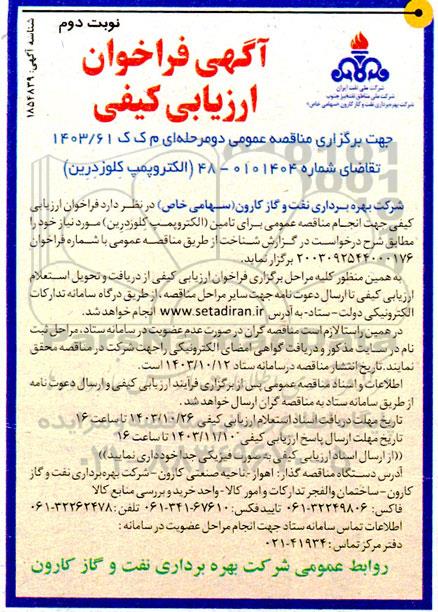 نوبت دوم
شناسه آگهی: ۱۸۵۴۸۳۹
آگهی فراخوان
ارزیابی کیفی
شرکت ملی نفت ایران
شرکت ملی مناطق نفتخیز جنوب
شرکت بهره‌برداری نفت و گاز کارون «سهامی خاص»
جهت برگزاری مناقصه عمومی دومرحله‌ای م ک ک ۱۴۰۳/۶۱
تقاضای شماره ۰۱۰۱۴۰۴ – ۴۸ (الکتروپمپ کلوزدرین)
شرکت بهره برداری نفت و گاز کارون(سهامی خاص) در نظر دارد فراخوان ارزیابی
کیفی جهت انجام مناقصه عمومی برای تامین (الکتروپمپ کلوزدرین) مورد نیاز خود را
مطابق شرح درخواست در گزارش شناخت از طریق مناقصه عمومی با شماره فراخوان
۲۰۰۳۰۹۲۵۴۴۰۰۰۱۷۶ برگزار نماید.
به همین منظور کلیه مراحل برگزاری فراخوان ارزیابی کیفی از دریافت و تحویل استعلام
ارزیابی کیفی تا ارسال دعوت نامه جهت سایر مراحل مناقصه، از طریق درگاه سامانه تدارکات
الکترونیکی دولت-ستاد-به آدرس www.setadiran.ir انجام خواهد شد.
در همین راستا لازم است مناقصه گران در صورت عدم عضویت در سامانه ستاد، مراحل ثبت
نام در سایت مذکور و دریافت گواهی امضای الکترونیکی را جهت شرکت در مناقصه محقق
نمایند. تاریخ انتشار مناقصه در سامانه ستاد ۱۴۰۳/۱۰/۱۲ است.
اطلاعات و اسناد مناقصه عمومی پس از برگزاری فرآیند ارزیابی کیفی و ارسال دعوت نامه
از طریق سامانه ستاد به مناقصه گران ارسال خواهد شد.
تاریخ مهلت دریافت اسناد استعلام ارزیابی کیفی ۱۴۰۳/۱۰/۲۶ تا ساعت ۱۶
تاریخ مهلت ارسال پاسخ ارزیابی کیفی ۱۴۰۳/۱۱/۱۰ تا ساعت ۱۶
((از ارسال اسناد ارزیابی کیفی به صورت فیزیکی جدا خودداری نمایید))
آدرس دستگاه مناقصه گذار: اهواز-ناحیه صنعتی کارون-شرکت بهره‌برداری نفت و گاز
کارون-ساختمان والفجر تدارکات و امور کالا-واحد خرید و بررسی منابع کالا
فاکس: ۳۲۲۴۹۸۰۶-۰۶۱ تایید فکس: ۶۷۶۱۰-۳۴۱-۰۶۱ تلفن: ۳۲۲۶۲۴۷۸-۰۶۱
اطلاعات تماس سامانه ستاد جهت انجام مراحل عضویت در سامانه:
دفتر مرکز تماس: ۴۱۹۳۴-۰۲۱
روابط عمومی شرکت بهره برداری نفت و گاز کارون